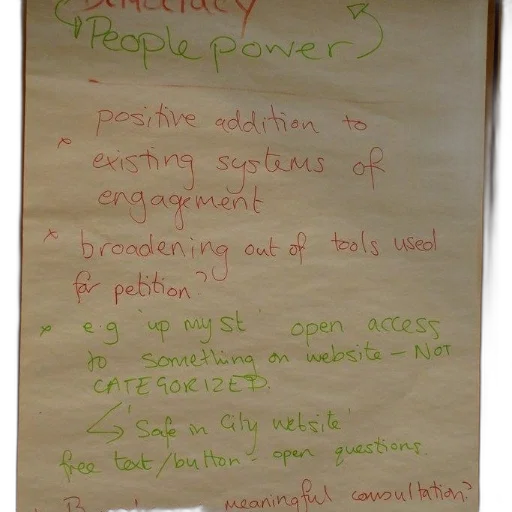 Democracy
People power
positive addition to
* existing systems of
engagement
* broadening out of tools used
for petition?
* e.g 'up my st' open access
to something on website - NOT
CATEGORIZED.
'Safe in City website'
free text/button - open questions.
meaningful consultation?